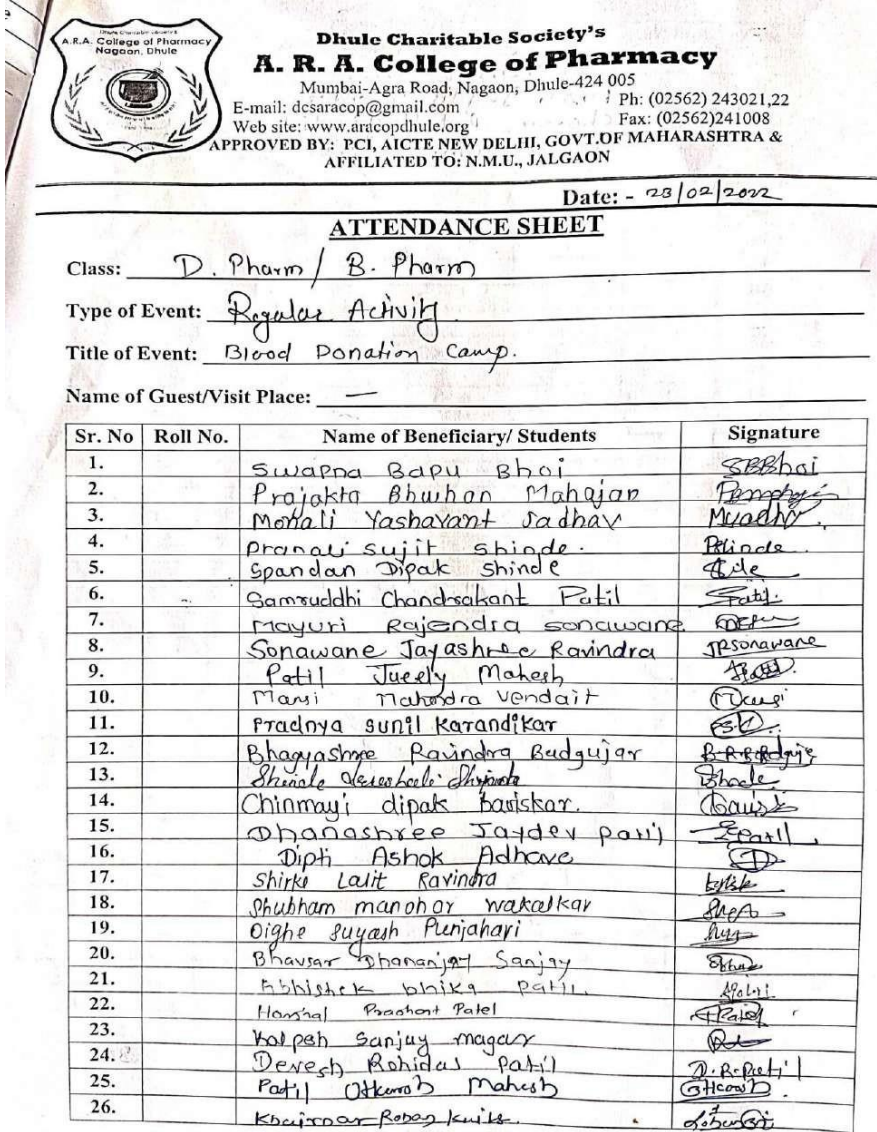 Dhule Charitable Society's
A.R.A. College of Pharmacy
Nagaon, Dhule
Dhule Charitable Society's
A. R. A. College of Pharmacy
Mumbai-Agra Road, Nagaon, Dhule-424 005
E-mail: dcsaracop@gmail.com Ph: (02562) 243021,22
Web site: www.aracopdhule.org Fax: (02562)241008
APPROVED BY: PCI, AICTE NEW DELHI, GOVT.OF MAHARASHTRA &
AFFILIATED TO: N.M.U., JALGAON
Date: - 23/02/2022
ATTENDANCE SHEET
Class: D. Pharm / B. Pharm
Type of Event: Regular Activity
Title of Event: Blood Donation Camp.
Name of Guest/Visit Place: —
Sr. No Roll No. Name of Beneficiary/ Students Signature
1. Swapna Bapu Bhoi SBBhoi
2. Prajakta Bhushan Mahajan
3. Monali Yashavant Jadhav
4. Pranali sujit shinde.
5. Spandan Dipak Shinde
6. Samruddhi Chandrakant Patil Patil
7. Mayuri Rajendra sonawane
8. Sonawane Jayashree Ravindra JRsonawane
9. Patil Jueely Mahesh
10. Mansi Mahendra Vendait
11. Pradnya sunil Karandikar
12. Bhagyashree Ravindra Badgujar
13. Shinde
14. Chinmayi dipak baviskar.
15. Dhanashree Jaydev patil
16. Dipti Ashok Adhave
17. Shirke Lalit Ravindra
18. Shubham manohar wakalkar
19. Dighe Suyash Punjahari
20. Bhavsar Dhananjay Sanjay
21. Abhishek bhika patil
22. Harshal Prashant Patel
23. Kalpesh Sanjay magar
24. Devesh Rohidas Patil D.R.Patil
25. Patil Mahesh
26. Khairnar Rohan